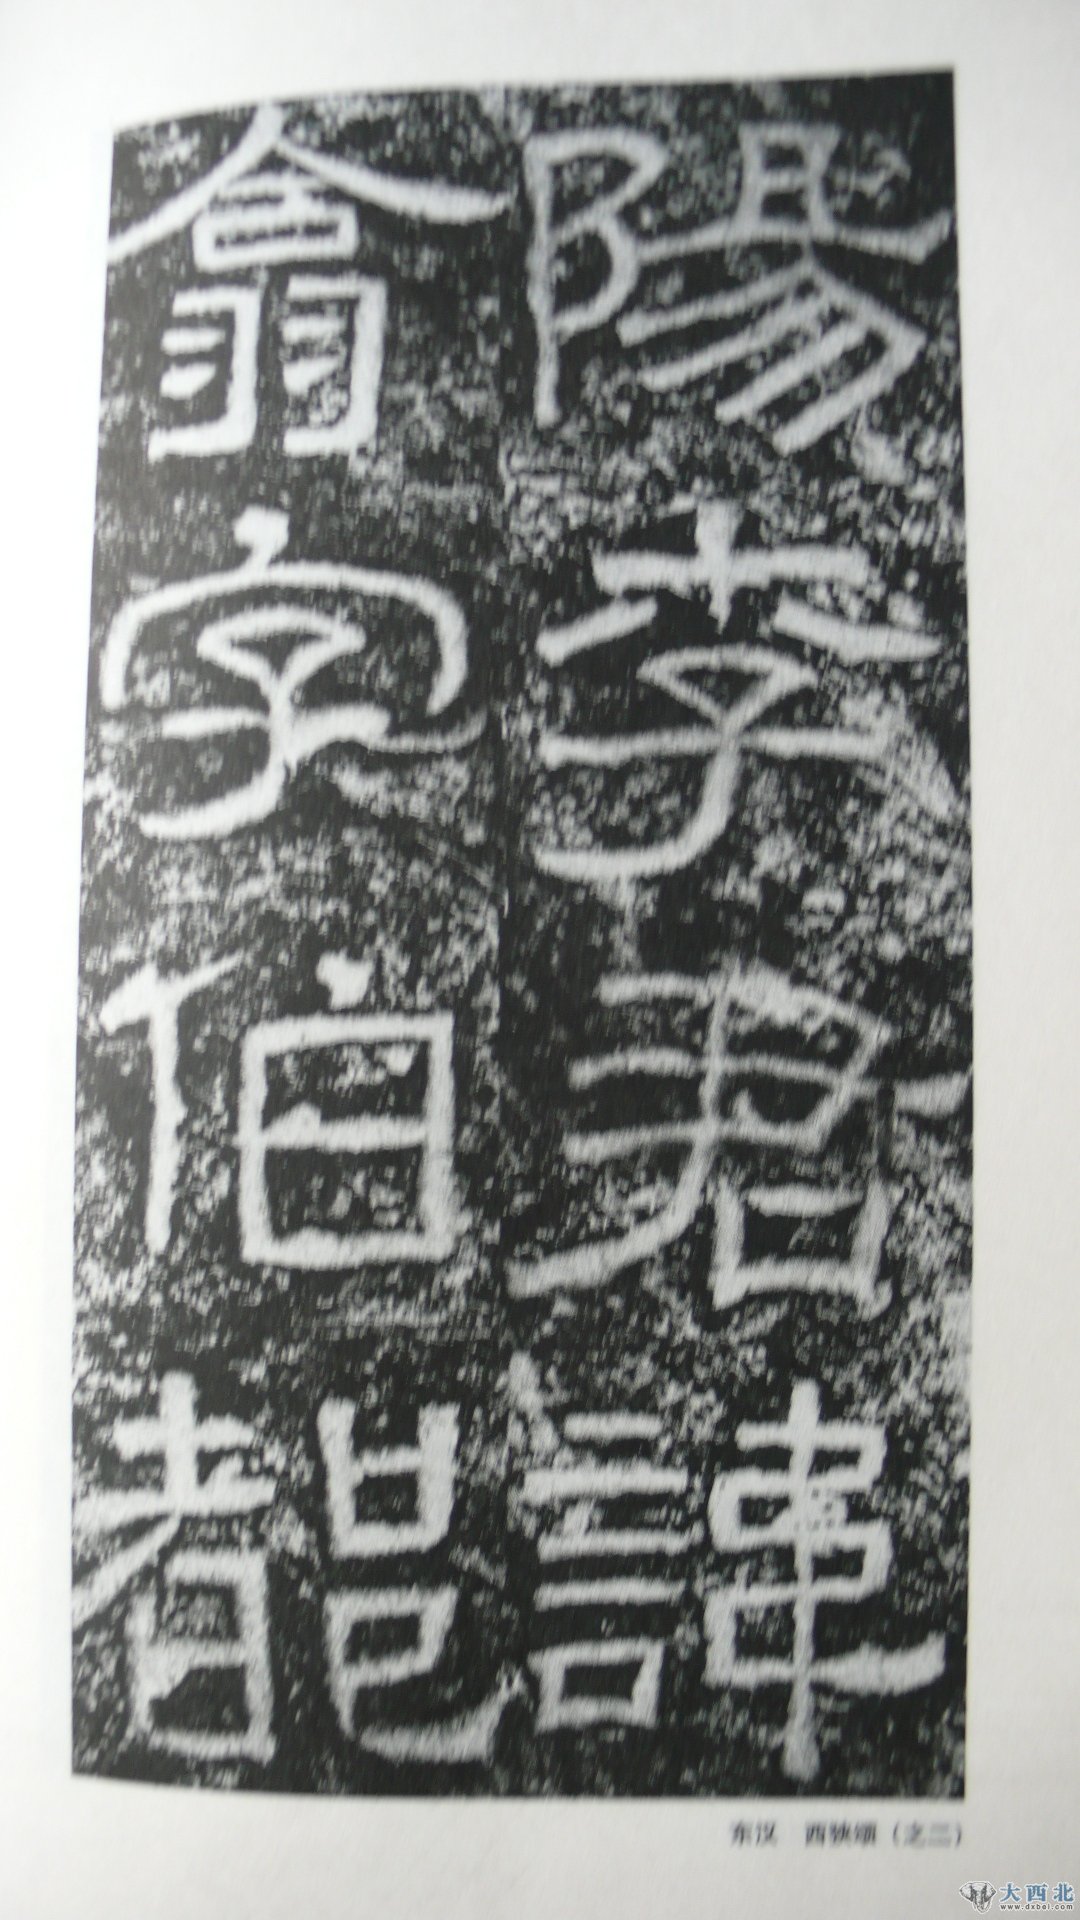 陽李君諱
翕字伯都
东汉 西狭颂（之二）
大西北
www.dxbei.com